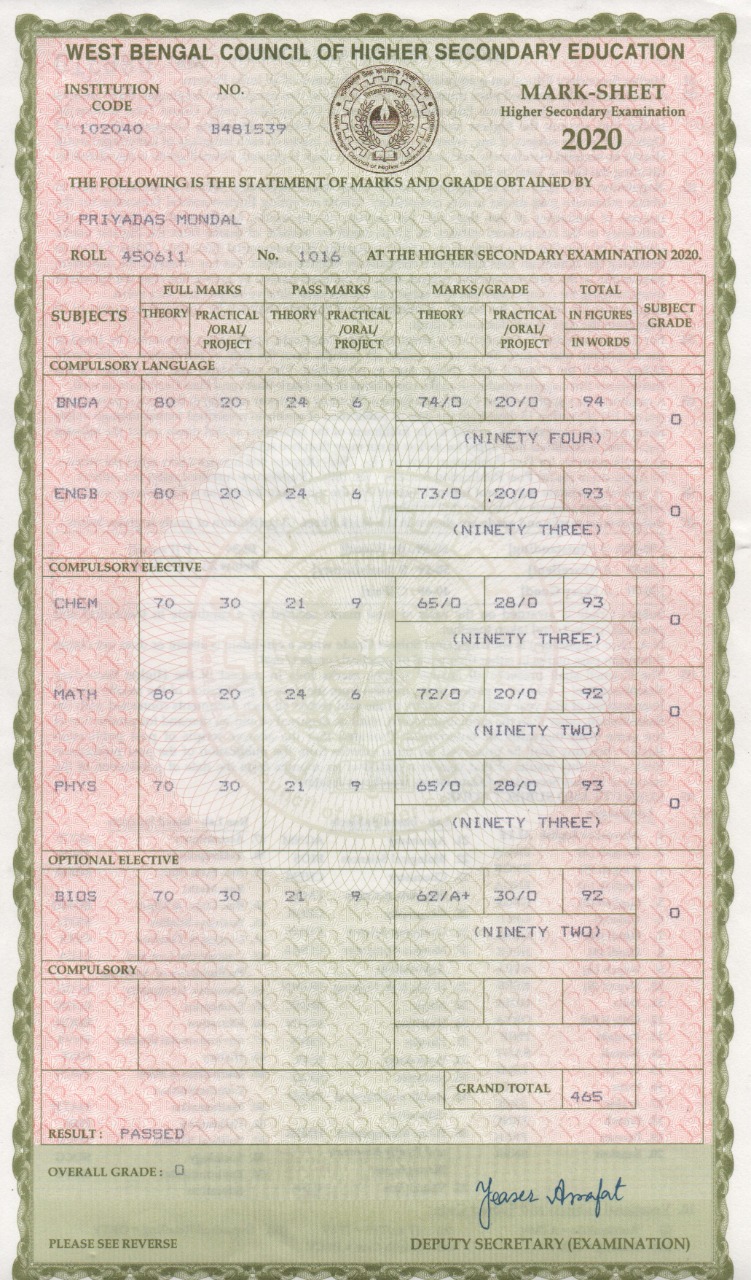 WEST BENGAL COUNCIL OF HIGHER SECONDARY EDUCATION
INSTITUTION CODE
102040
NO.
B481539
MARK-SHEET
Higher Secondary Examination
2020
THE FOLLOWING IS THE STATEMENT OF MARKS AND GRADE OBTAINED BY
PRIYADAS MONDAL
ROLL 450611 No. 1016 AT THE HIGHER SECONDARY EXAMINATION 2020.
SUBJECTS FULL MARKS PASS MARKS MARKS/GRADE TOTAL SUBJECT GRADE
THEORY PRACTICAL /ORAL/ PROJECT THEORY PRACTICAL /ORAL/ PROJECT THEORY PRACTICAL /ORAL/ PROJECT IN FIGURES
IN WORDS
COMPULSORY LANGUAGE
BNGA 80 20 24 6 74/O 20/O 94 O
(NINETY FOUR)
ENGB 80 20 24 6 73/O 20/O 93 O
(NINETY THREE)
COMPULSORY ELECTIVE
CHEM 70 30 21 9 65/O 28/O 93 O
(NINETY THREE)
MATH 80 20 24 6 72/O 20/O 92 O
(NINETY TWO)
PHYS 70 30 21 9 65/O 28/O 93 O
(NINETY THREE)
OPTIONAL ELECTIVE
BIOS 70 30 21 9 62/A+ 30/O 92 O
(NINETY TWO)
COMPULSORY
GRAND TOTAL 465
RESULT : PASSED
OVERALL GRADE : O
Yeaser Arafat
PLEASE SEE REVERSE
DEPUTY SECRETARY (EXAMINATION)